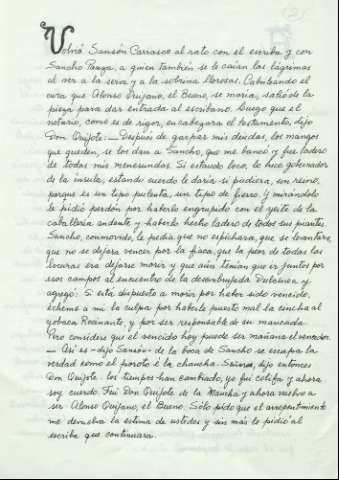 (3)
Volvió Sansón Carrasco al rato con el escriba y con
Sancho Panza, a quien también se le caían las lágrimas
al ver a la serva y a la sobrina llorosas. Cabuleando el
cura que Alonso Quijano, el Bueno, se moría, salió de la
pieza para dar entrada al escribano. Luego que el
notario, como es de rigor, encabezara el testamento, dijo
Don Quijote: — Después de garpar mis deudas, los mangos
que queden, se los dan a Sancho, que me bancó y fue ladero
de todas mis menesundas. Si estando loco, lo hice gobernador
de la ínsula, estando cuerdo le daría si pudiera, un reino,
porque es un tipo pulenta, un tipo de fierro. Y mirándolo
le pidió perdón por haberlo engrupido con el yeite de la
caballería andante y haberlo hecho ladero de todos sus piantes.
Sancho, conmovido, le pedía que no espichara, que se levantara,
que no se dejara vencer por la fiaca, que la peor de todas las
locuras era dejarse morir y que aún tenían que ir juntos por
esos campos al encuentro de la desembrujada Dulcinea, y
agregó: Si está dispuesto a morir por haber sido vencido,
écheme a mí la culpa por haberle puesto mal la cincha al
Rocinante, y por ser responsable de su mancada.
Pero considere que el vencido hoy puede ser mañana el vencedor.
— Así es - dijo Sansón - de la boca de Sancho se escapa la
verdad como el poroto a la chaucha. Señores, dijo entonces
Don Quijote: los tiempos han cambiado, yo fui colifa y ahora
soy cuerdo. Fui Don Quijote de la Mancha y ahora vuelvo a
ser Alonso Quijano, el Bueno. Sólo pido que el arrepentimiento
me devuelva la estima de ustedes y sin más le pidió al
escriba que continuara.